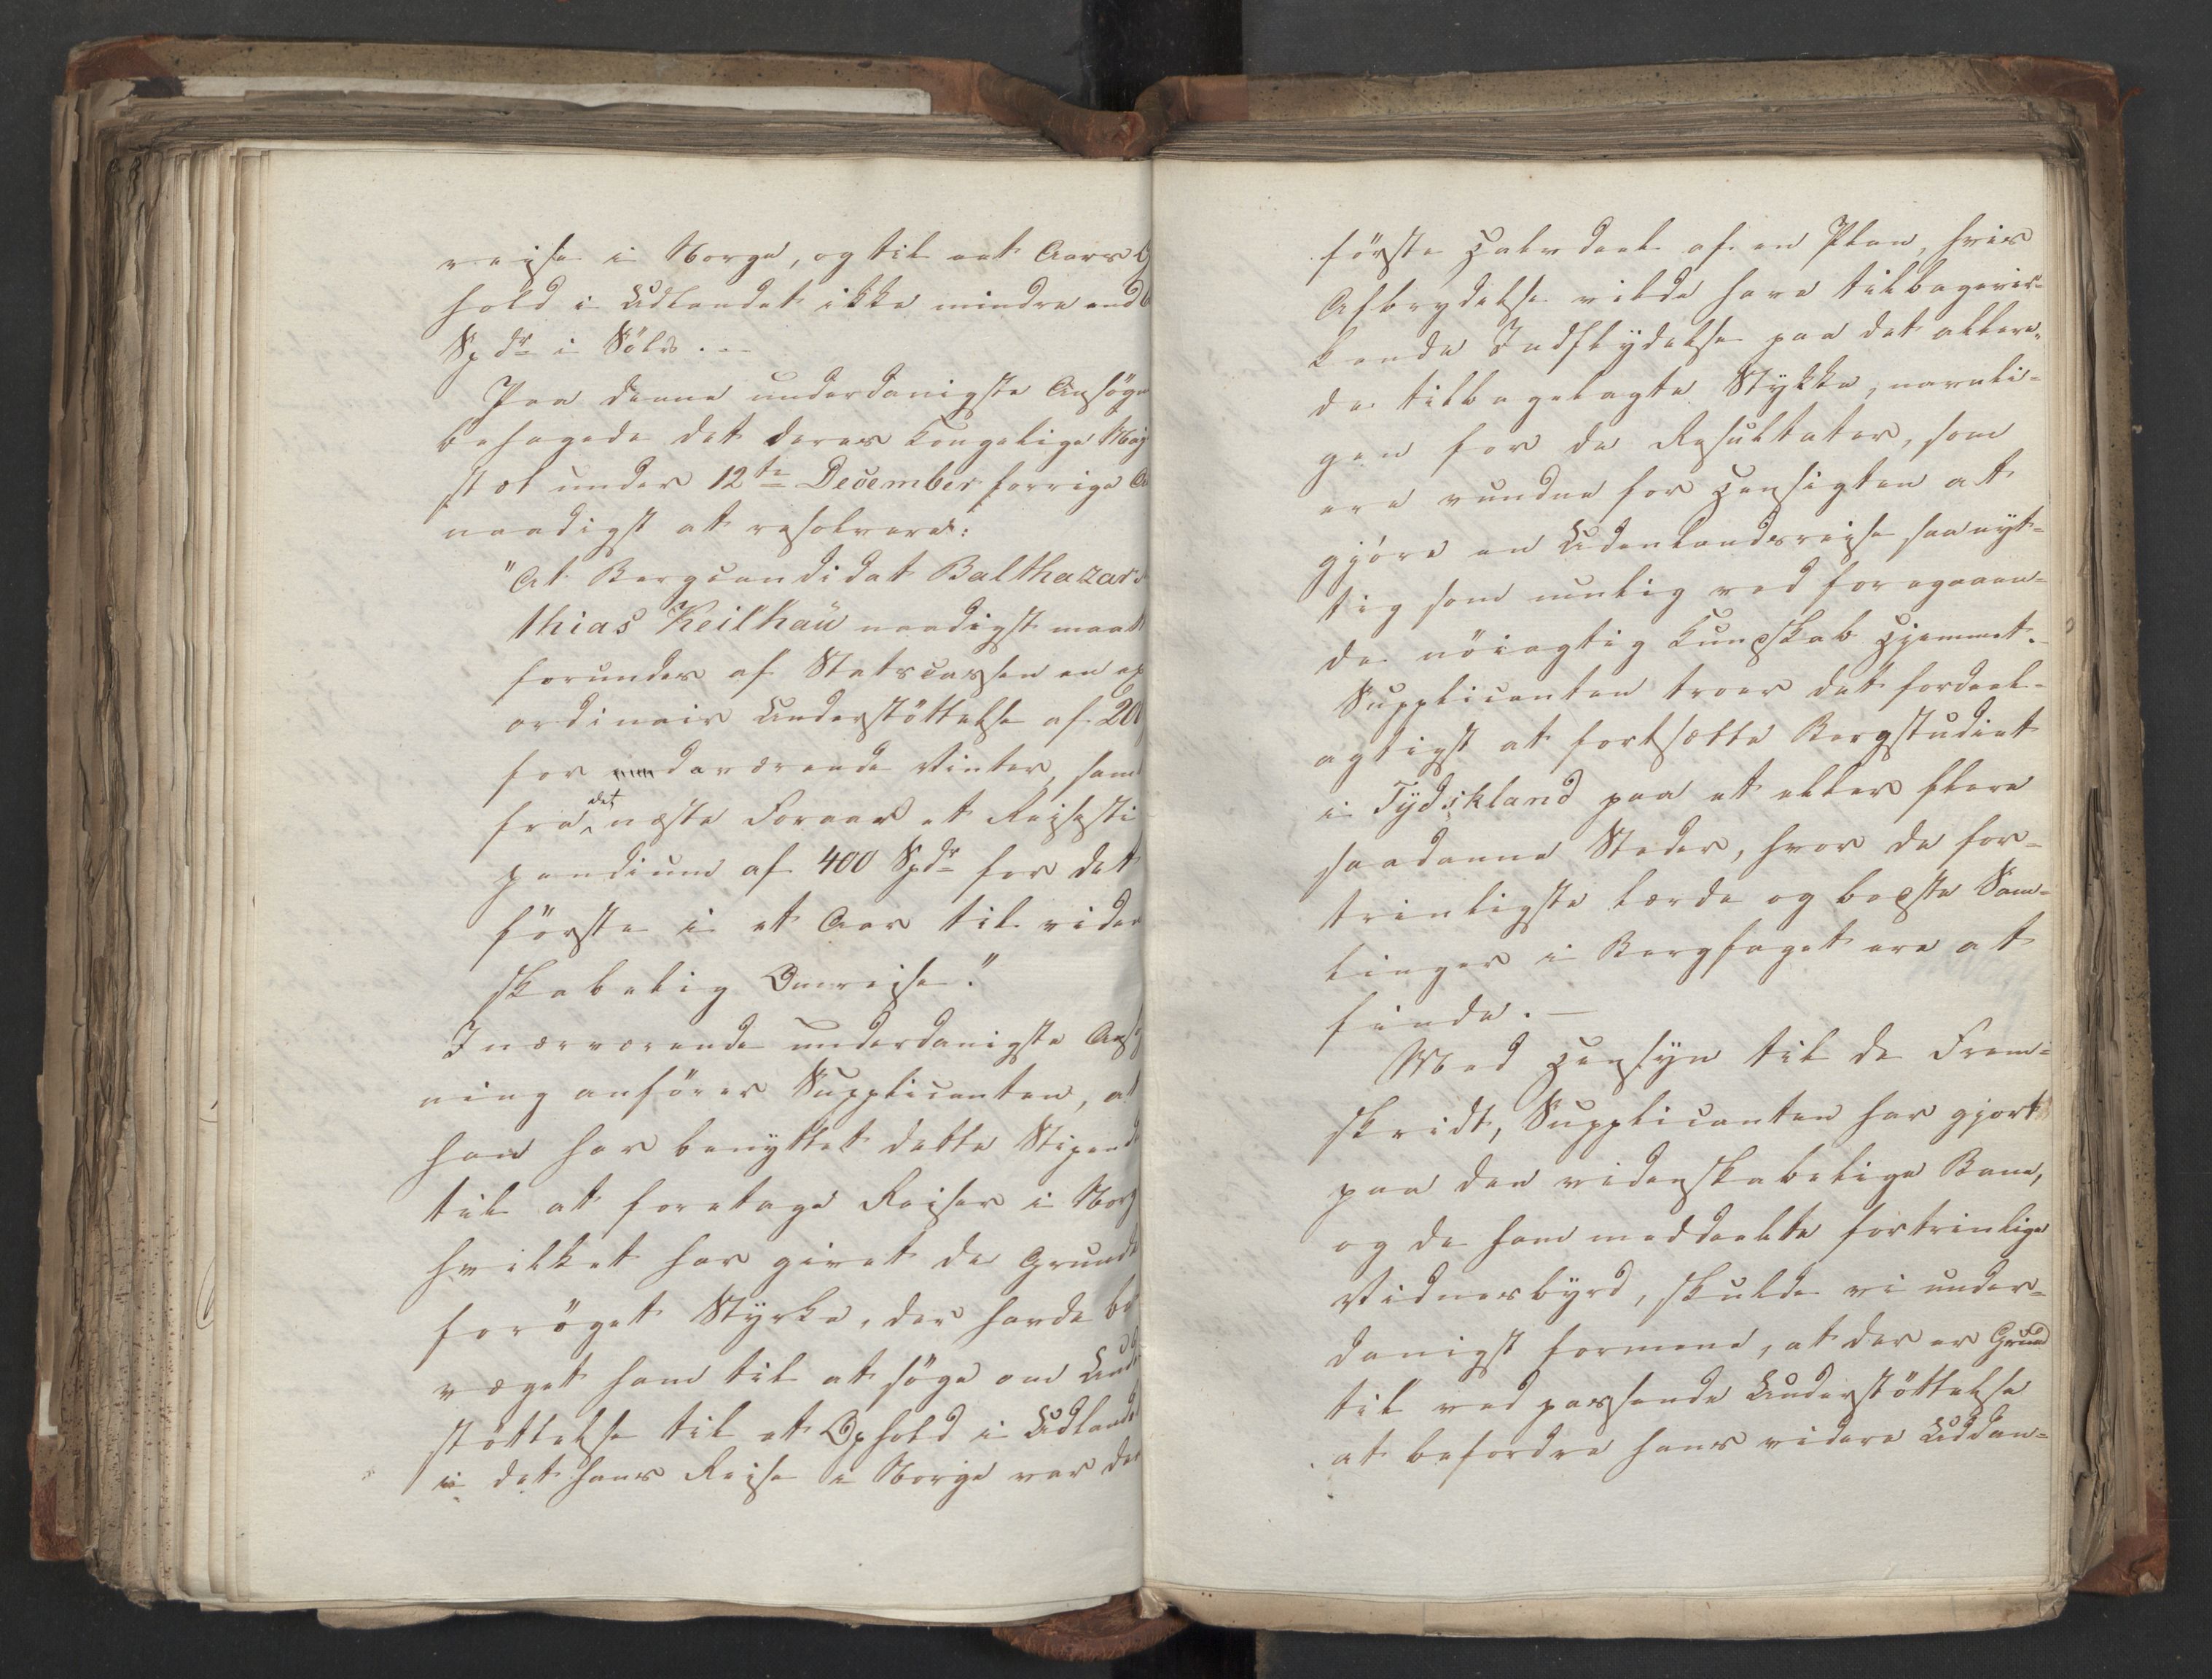 reise i Norge, og til eet Aars
hold i Udlandet ikke mindre end
Spdr i Sölv. --
Paa denne underdanigste Ansögn
behagede det deres Kongelige Maj
stæt under 12te December forrige A
naadigst at resolvere:
"At Bergcandidat Balthazar
thias Keilhaü naadigst maatt
forundes af Statscassen en ex
ordinair Understöttelse af 200
for nuværende Vinter, samt
fra det næste Foraar et Reisesti
pendium af 400 Spdr for det
förste i et Aar til viden
skabelig Omreise."
I nærværende underdanigste Ansög
ning anförer Supplicanten, at
han har benyttet dette Stipend
til at foretage Reiser i Norg
hvilket har givet de Grunde
foröget Styrke, der havde be
væget ham til at söge om Und
stöttelse til et Ophold i Udlandet
i det hans Reise i Norge var den
förste Halvdeel af en Plan, hvis
Afbrydelse vilde have tilbagevir-
kende Indflydelse paa det allere-
de tilbagelagte Stykke, navnli-
gen for de Resultater, som
ere vundne for Hensigten at
gjöre en Udenlandsreise saa nyt-
tig som mulig ved foregaaen-
de nöiagtig Kundskab Hjemmet.
Supplicanten troer det fordeel-
agtigst at fortsætte Bergstudiet
i Tydskland paa et eller flere
saadanne Steder, hvor de for-
trinligste Lærde og bedste Sam-
linger i Bergfaget ere at
finde. —
Med Hensyn til de Frem-
skridt, Supplicanten har gjort
paa den videnskabelige Bane,
og de ham meddeelte fortrinlige
Vidnesbyrd, skulde vi under-
danigst formene, at der er Grund
til ved passende Understöttelse
at befordre hans videre Uddan-